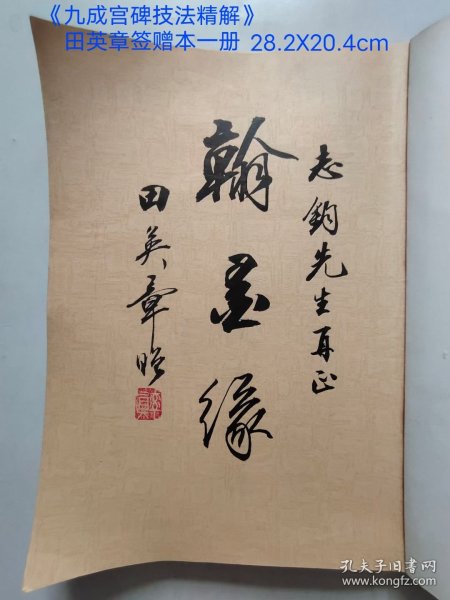 《九成宫碑技法精解》
田英章签赠本一册 28.2X20.4cm
志钧先生再正
翰墨缘
田英章贈
孔夫子旧书网
www.kongfz.com